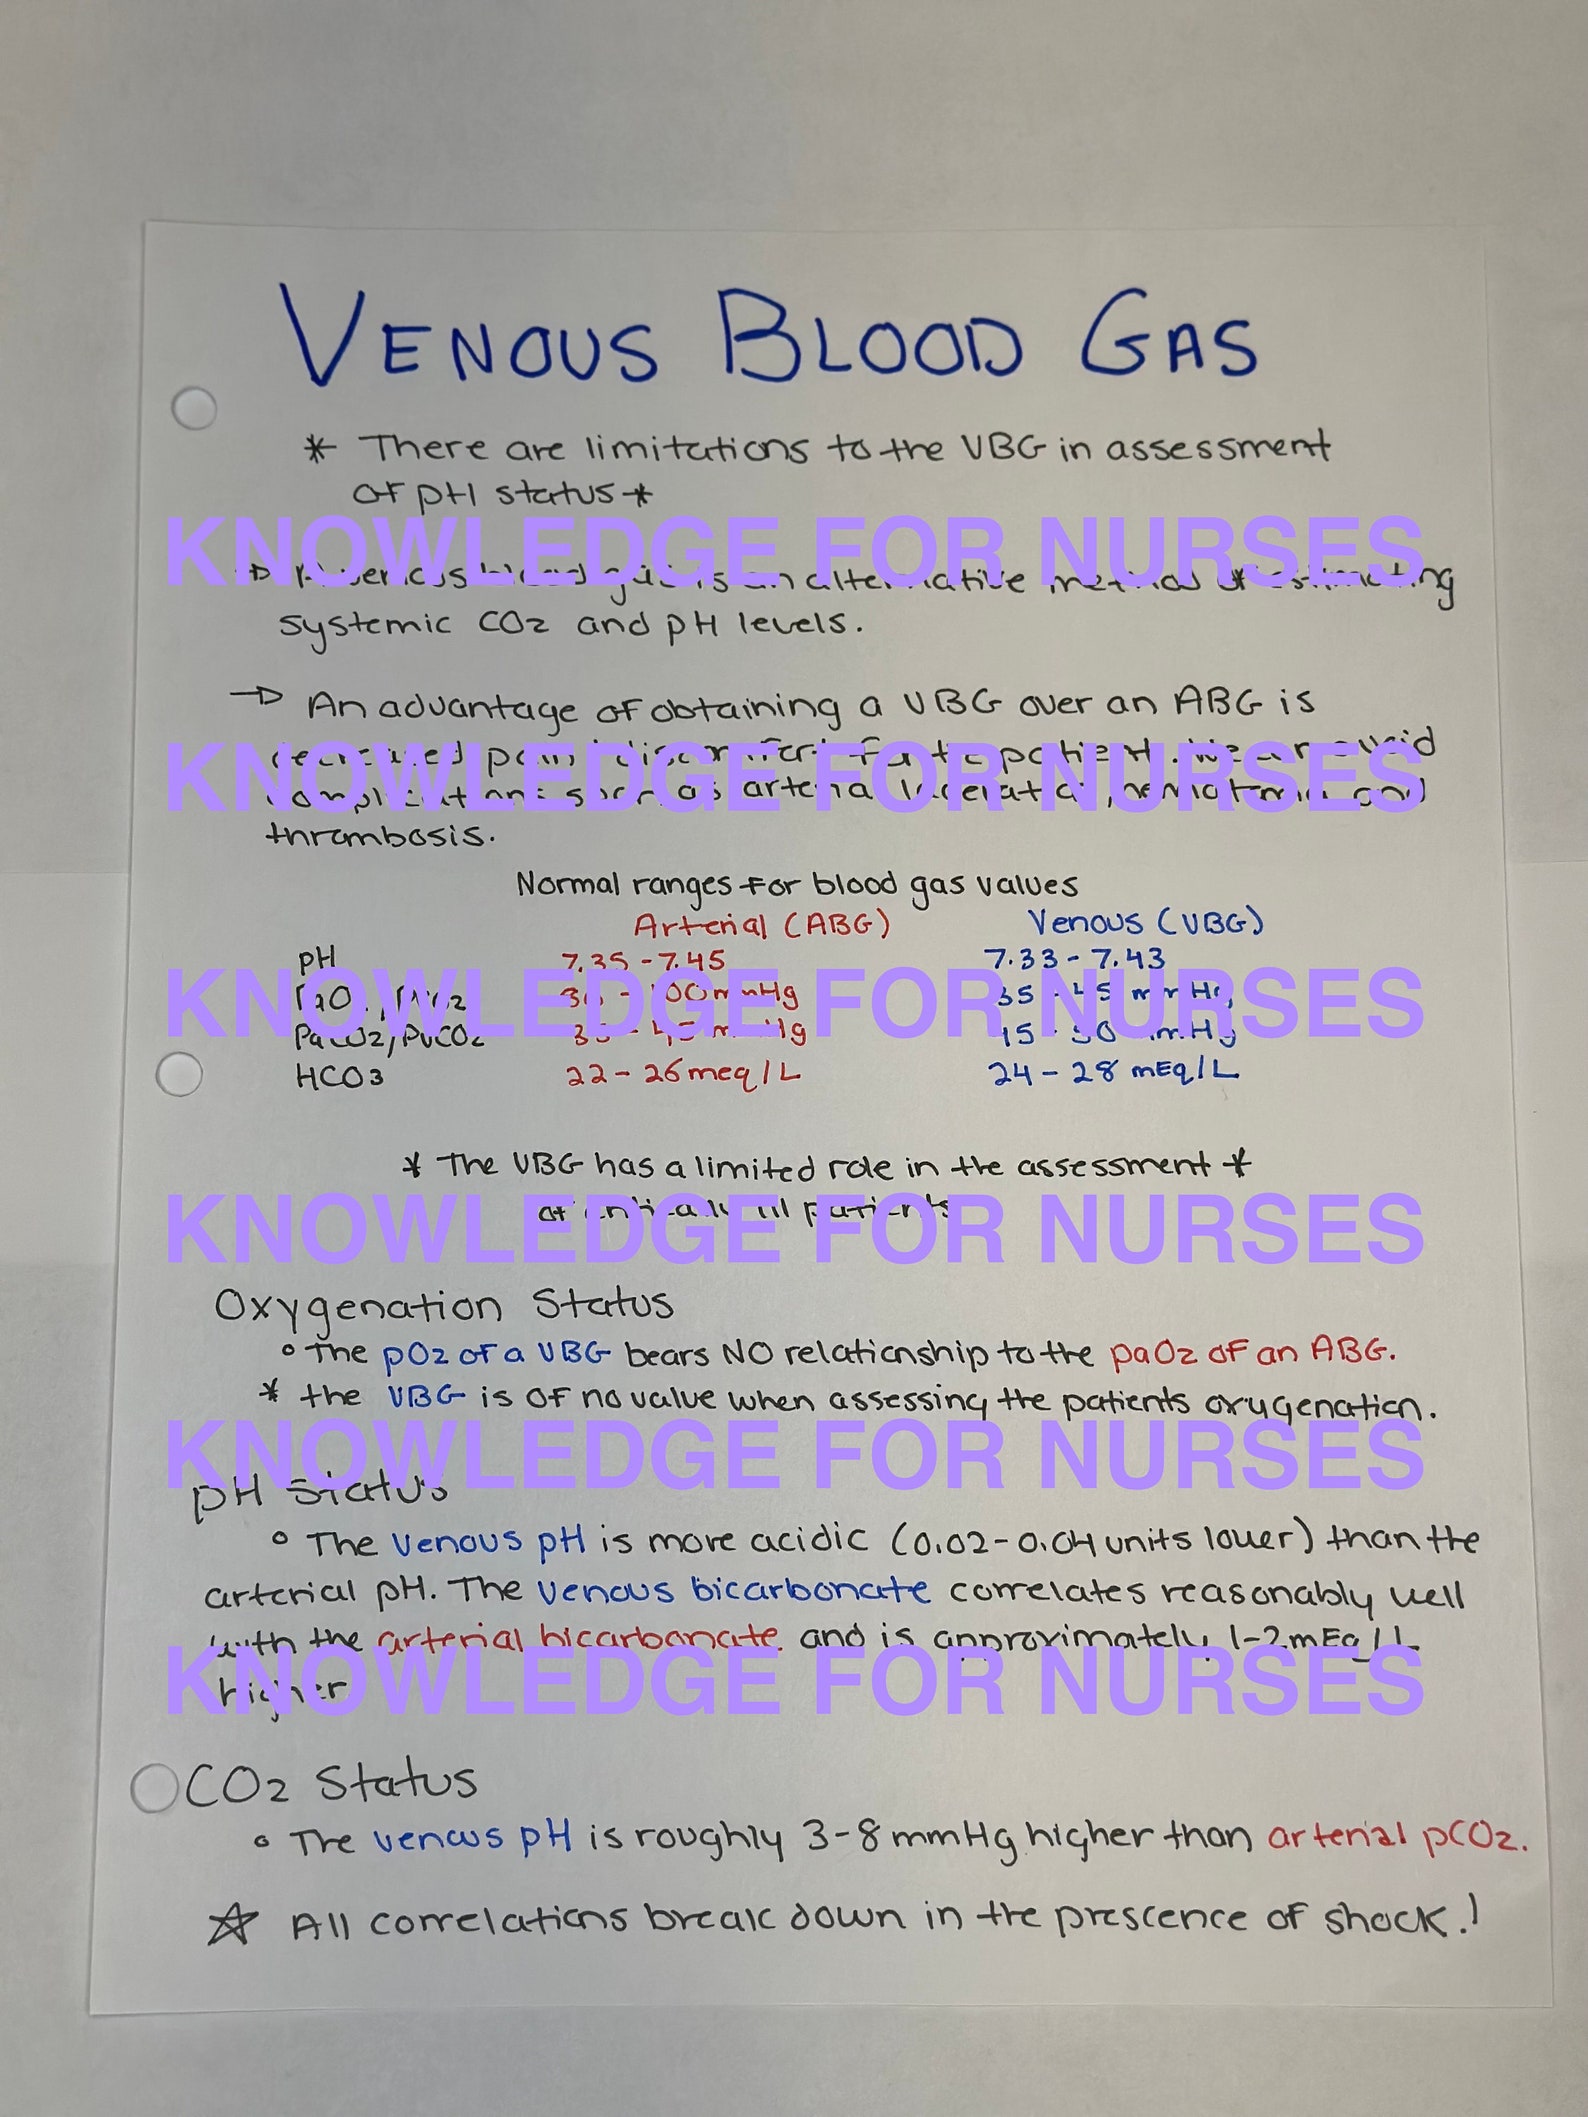 VENOUS BLOOD GAS
* There are limitations to the VBG in assessment
of pH status *
KNOWLEDGE FOR NURSES
A venous blood gas is an alternative method of estimating
systemic CO2 and pH levels.
An advantage of obtaining a VBG over an ABG is
KNOWLEDGE FOR NURSES
decreased pain / discomfort for the patient. We can avoid
complications such as arterial laceration, hematoma and
thrombosis.
Normal ranges for blood gas values
Arterial (ABG) Venous (VBG)
pH 7.35 - 7.45 7.33 - 7.43
KNOWLEDGE FOR NURSES
100 mmHg 35 - 45 mmHg
PaCO2/PvCO2 mmHg mmHg
HCO3 22 - 26 meq/L 24 - 28 mEq/L
* The VBG has a limited role in the assessment *
of critically ill patients
KNOWLEDGE FOR NURSES
Oxygenation Status
° The pO2 of a VBG bears NO relationship to the paO2 of an ABG.
* the VBG is of no value when assessing the patients oxygenation.
KNOWLEDGE FOR NURSES
pH Status
° The venous pH is more acidic (0.02-0.04 units lower) than the
arterial pH. The venous bicarbonate correlates reasonably well
with the arterial bicarbonate and is approximately 1-2 mEq/L
KNOWLEDGE FOR NURSES
higher
CO2 Status
° The venous pH is roughly 3-8 mmHg higher than arterial pCO2.
☆ All correlations break down in the prescence of shock!